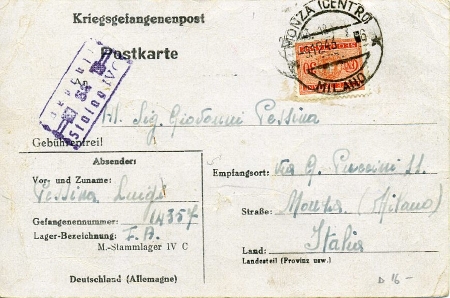 Kriegsgefangenenpost
Postkarte
MONZA (CENTRO)
MILANO
All. Sig. Giovanni Pessina
Gebührenfrei
Absender:
Vor- und Zuname:
Pessina Luigi
Gefangenennummer:
Lager-Bezeichnung: F. A.
M.-Stammlager IV C
Deutschland (Allemagne)
Empfangsort: Via G. Puccini 11
Straße: Monza (Milano)
Land: Italia
Landesteil (Provinz usw.)